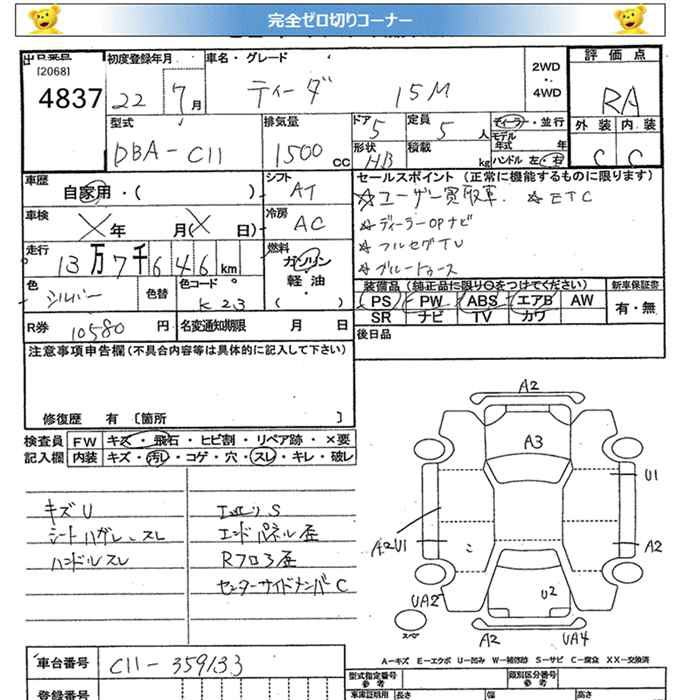 完全ゼロ切りコーナー
[2068]
4837
初度登録年月
22 7月
車名・グレード
ティーダ 15M
2WD
・
4WD
評価点
RA
外装 内装
C C
型式
DBA-C11
排気量
1500 cc
ドア 5
定員 5 人
ディーラー・並行
モデル年式 年
形状 HB
積載 kg
ハンドル 左・右
車歴
自家用・( )
シフト
AT
セールスポイント (正常に機能するものに限ります)
☆ユーザー買取車. ☆ETC
☆ディーラーOPナビ
☆フルセグTV
☆ブルートゥース
車検
X年 月(X 日)
冷房
AC
走行
13万7千646km
燃料
ガソリン
軽油・
( )
色
シルバー
色替
色コード
K23
装備品 (純正品に限り○をつけてください)
新車保証書
PS PW ABS エアB AW
有・無
SR ナビ TV カワ
R券 10580円
名変通知期限 月 日
後日品
注意事項申告欄(不具合内容等は具体的に記入して下さい)
修復歴 有 〔箇所 〕
検査員 FW キズ・飛石・ヒビ割・リペア跡・×要
記入欄 内装 キズ・汚れ・コゲ・穴・スレ・キレ・破レ
キズU
シートハガレ、スレ
ハンドルスレ
エンドパネル歪
Rフロア歪
センターサイドメンバーC
A2
A3
U1
A2U1
A2
こ
U2
UA2
スペア
A2
UA4
車台番号 C11-359133
A-キズ E-エクボ U-凹み W-補修跡 S-サビ C-腐食 XX-交換済
登録番号
型式指定番号
参考
類別区分番号
参考
車庫証明用
長さ
幅
高さ